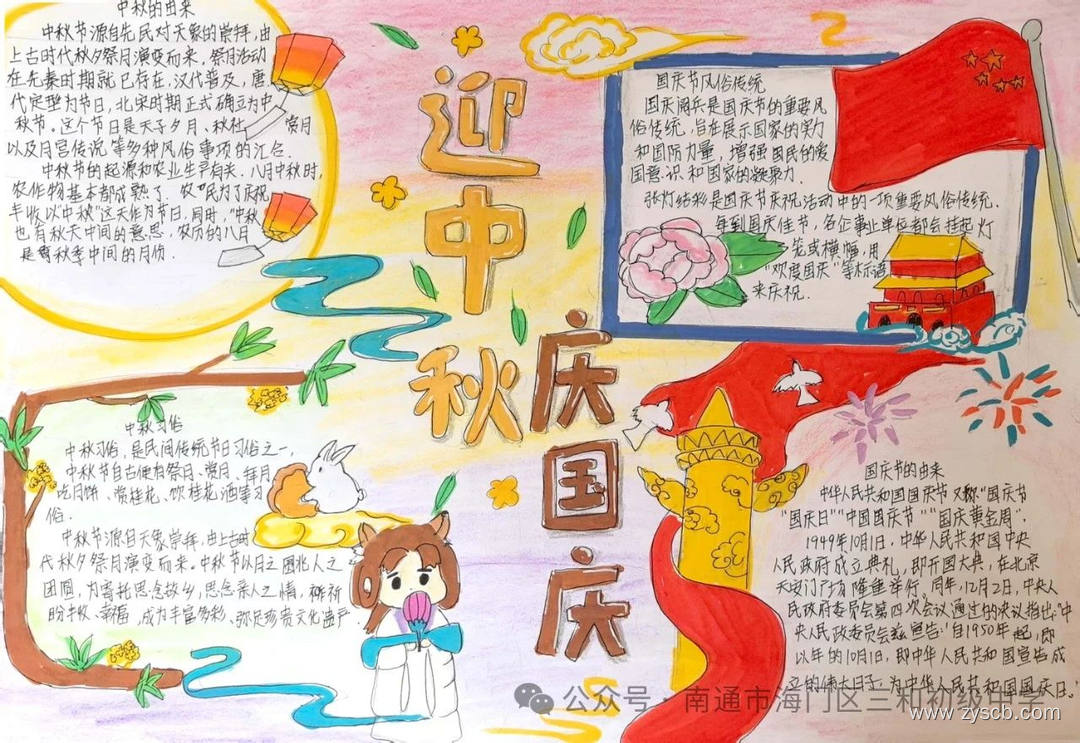 中秋的由来
中秋节源自先民对天象的崇拜,由
上古时代秋夕祭月演变而来。祭月活动
在先秦时期就已存在,汉代普及,唐
代定型为节日,北宋时期正式确立为中
秋节。这个节日是天子夕月、秋社、赏月
以及月宫传说等多种风俗事项的汇合。
中秋节的起源和农业生产有关。八月中秋时,
农作物基本都成熟了。农民为了庆祝
丰收以"中秋"这天作为节日,同时,"中秋
也有秋天中间的意思,农历的八月
是 秋季中间的月份.
迎中秋
庆国庆
国庆节风俗传统
国庆阅兵是国庆节的重要风
俗传统,旨在展示国家的实力
和国防力量,增强国民的爱
国意识和国家的凝聚力.
张灯结彩是国庆节庆祝活动中的一项重要风俗传统.
每到国庆佳节,各企事业单位都会挂起灯
笼或横幅,用
"欢度国庆"等标语
来庆祝.
中秋习俗
中秋习俗,是民间传统节日习俗之一,
中秋节自古便有祭月、赏月、拜月
吃月饼、赏桂花、饮桂花酒等习
俗.
中秋节源自天象崇拜,由上古时
代秋夕祭月演变而来。中秋节以月之圆兆人之
团圆,为寄托思念故乡,思念亲人之情,祈
盼丰收、幸福,成为丰富多彩、弥足珍贵文化遗产
国庆节的由来
中华人民共和国国庆节又称"国庆节
"国庆日""中国国庆节""国庆黄金周".
1949年10月1日,中华人民共和国中央
人民政府成立典礼,即开国大典,在北京
天安门广场隆重举行。同年12月2日,中央人
民政府委员会第四次会议通过的决议指出:"中
央人民政委员会兹宣告:自1950年起,即
以年的10月1日,即中华人民共和国宣告成
立的伟大日子,为中华人民共和国国庆日."
公众号·南通市海门区三和初级中学
www.zyscb.com